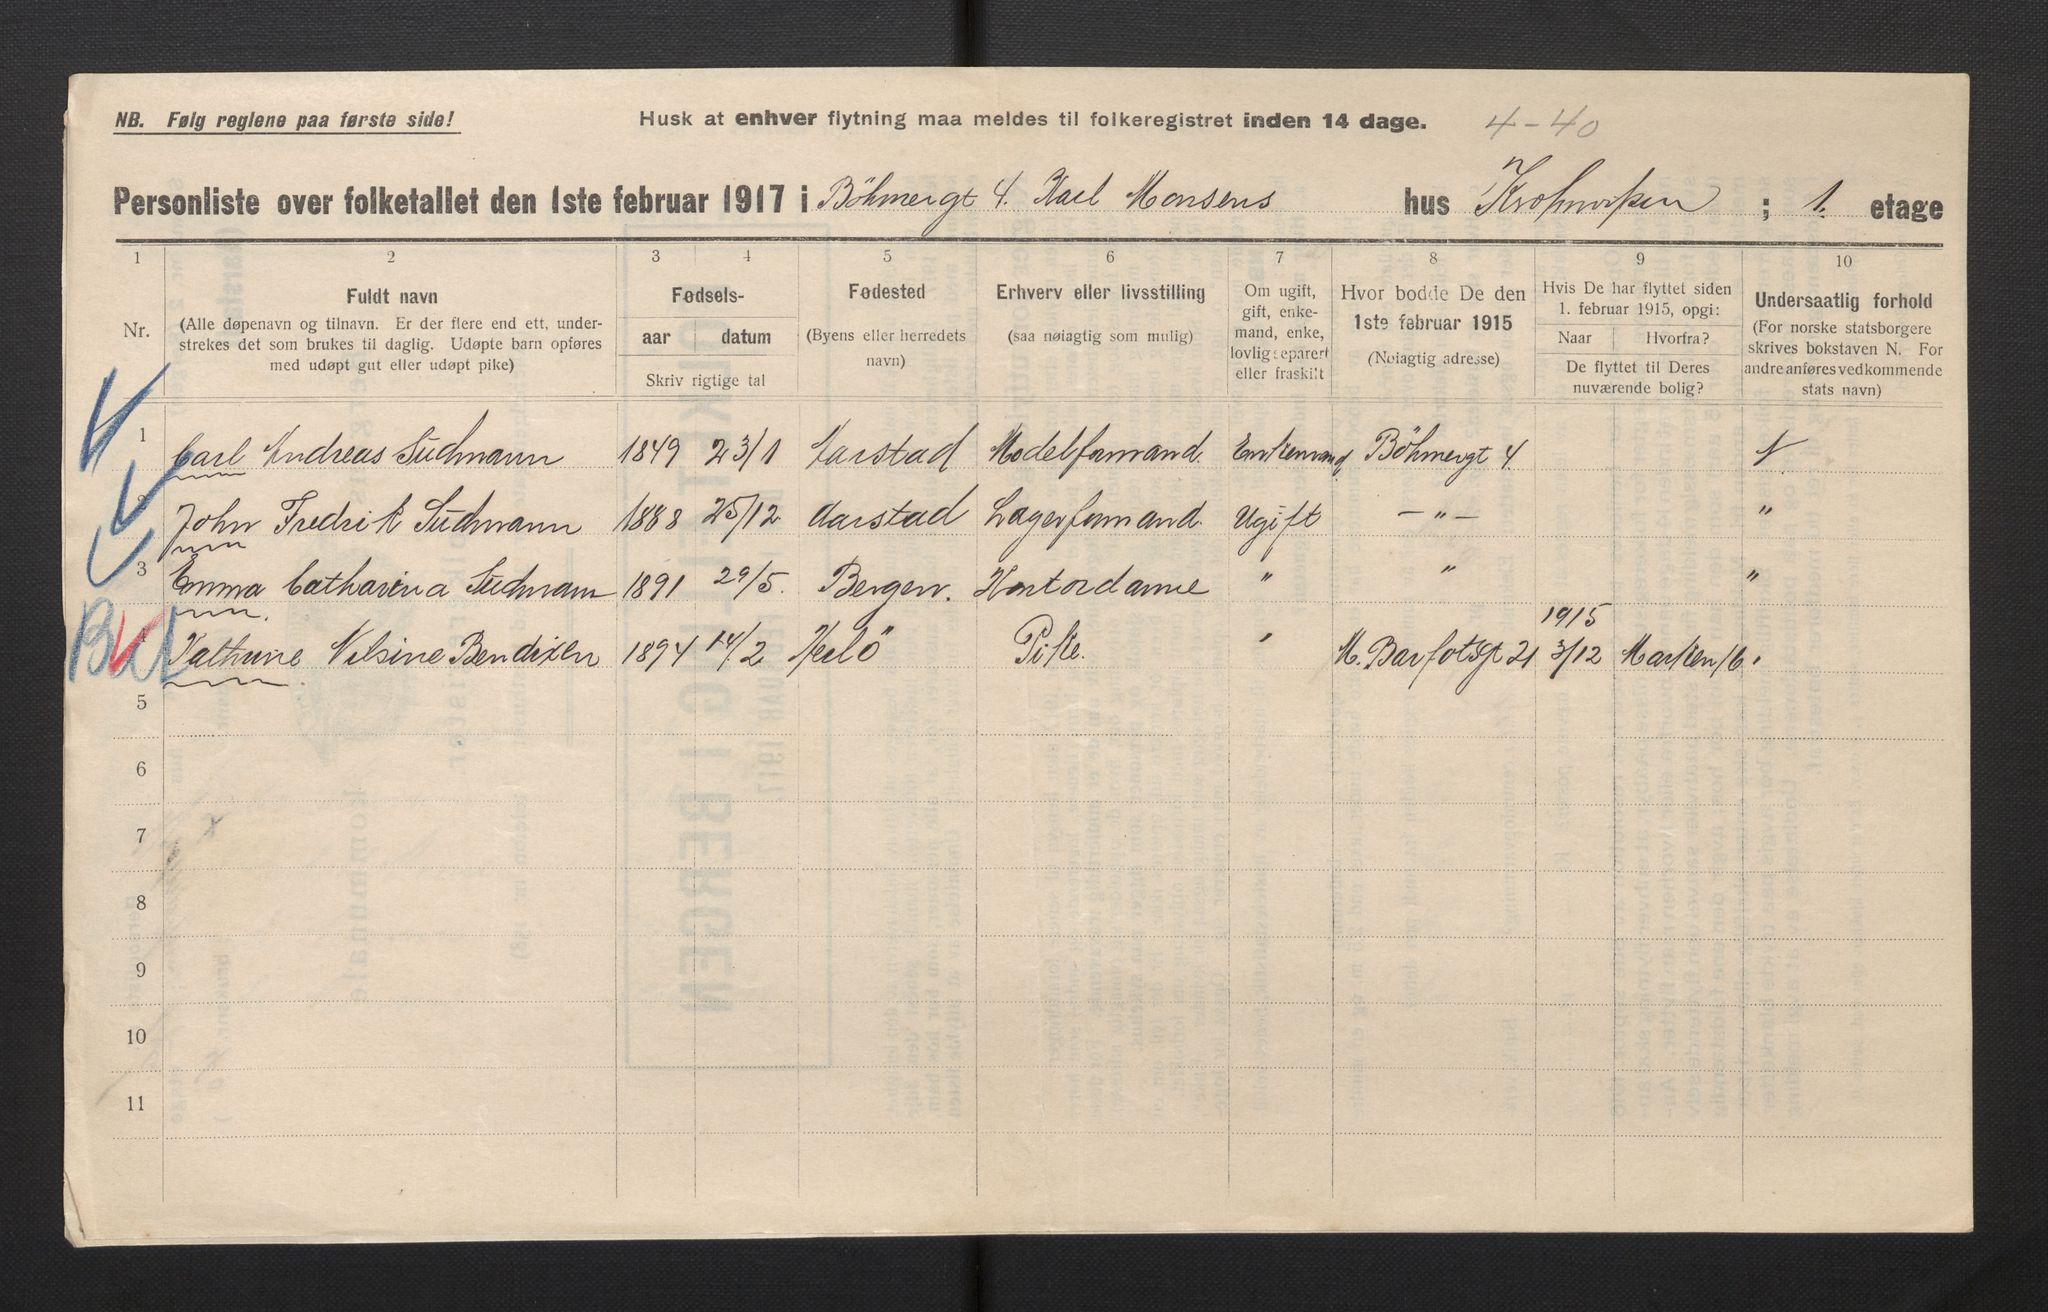 NB. Følg reglene paa første side!
Husk at enhver flytning maa meldes til folkeregistret inden 14 dage.
4-40
Personliste over folketallet den 1ste februar 1917 i Böhmergt 4. Karl Monsens hus ; 1. etage
1 2 3 4 5 6 7 8 9 10
Nr.
Fuldt navn
(Alle døpenavn og tilnavn. Er der flere end ett, under-
strekes det som brukes til daglig. Udøpte barn opføres
med udøpt gut eller udøpt pike)
Fødsels-
aar datum
Skriv rigtige tal
Fødested
(Byens eller herredets
navn)
Erhverv eller livsstilling
(saa nøiagtig som mulig)
Om ugift,
gift, enke-
mand, enke,
lovlig separert
eller fraskilt
Hvor bodde De den
1ste februar 1915
(Nøiagtig adresse)
Hvis De har flyttet siden
1. februar 1915, opgi:
Naar Hvorfra?
De flyttet til Deres
nuværende bolig?
Undersaatlig forhold
(For norske statsborgere
skrives bokstaven N. For
andre anføres vedkommende
stats navn)
1 Carl Andreas Sudmann 1849 23/1 Aarstad Modelformand. Enkemand Böhmergt 4. N
2 John Fredrik Sudmann 1888 25/12 Aarstad Lagerformand. Ugift — " — "
3 Emma Catharina Sudmann 1891 29/5. Bergen. Kontordame " " "
1915
4 Kathrine Nilsine Bendixen 1894 14/2 Herlö Pike. " M. Barfotsgt 21 3/12 Marken 16. "
5
6
7
8
9
10
11